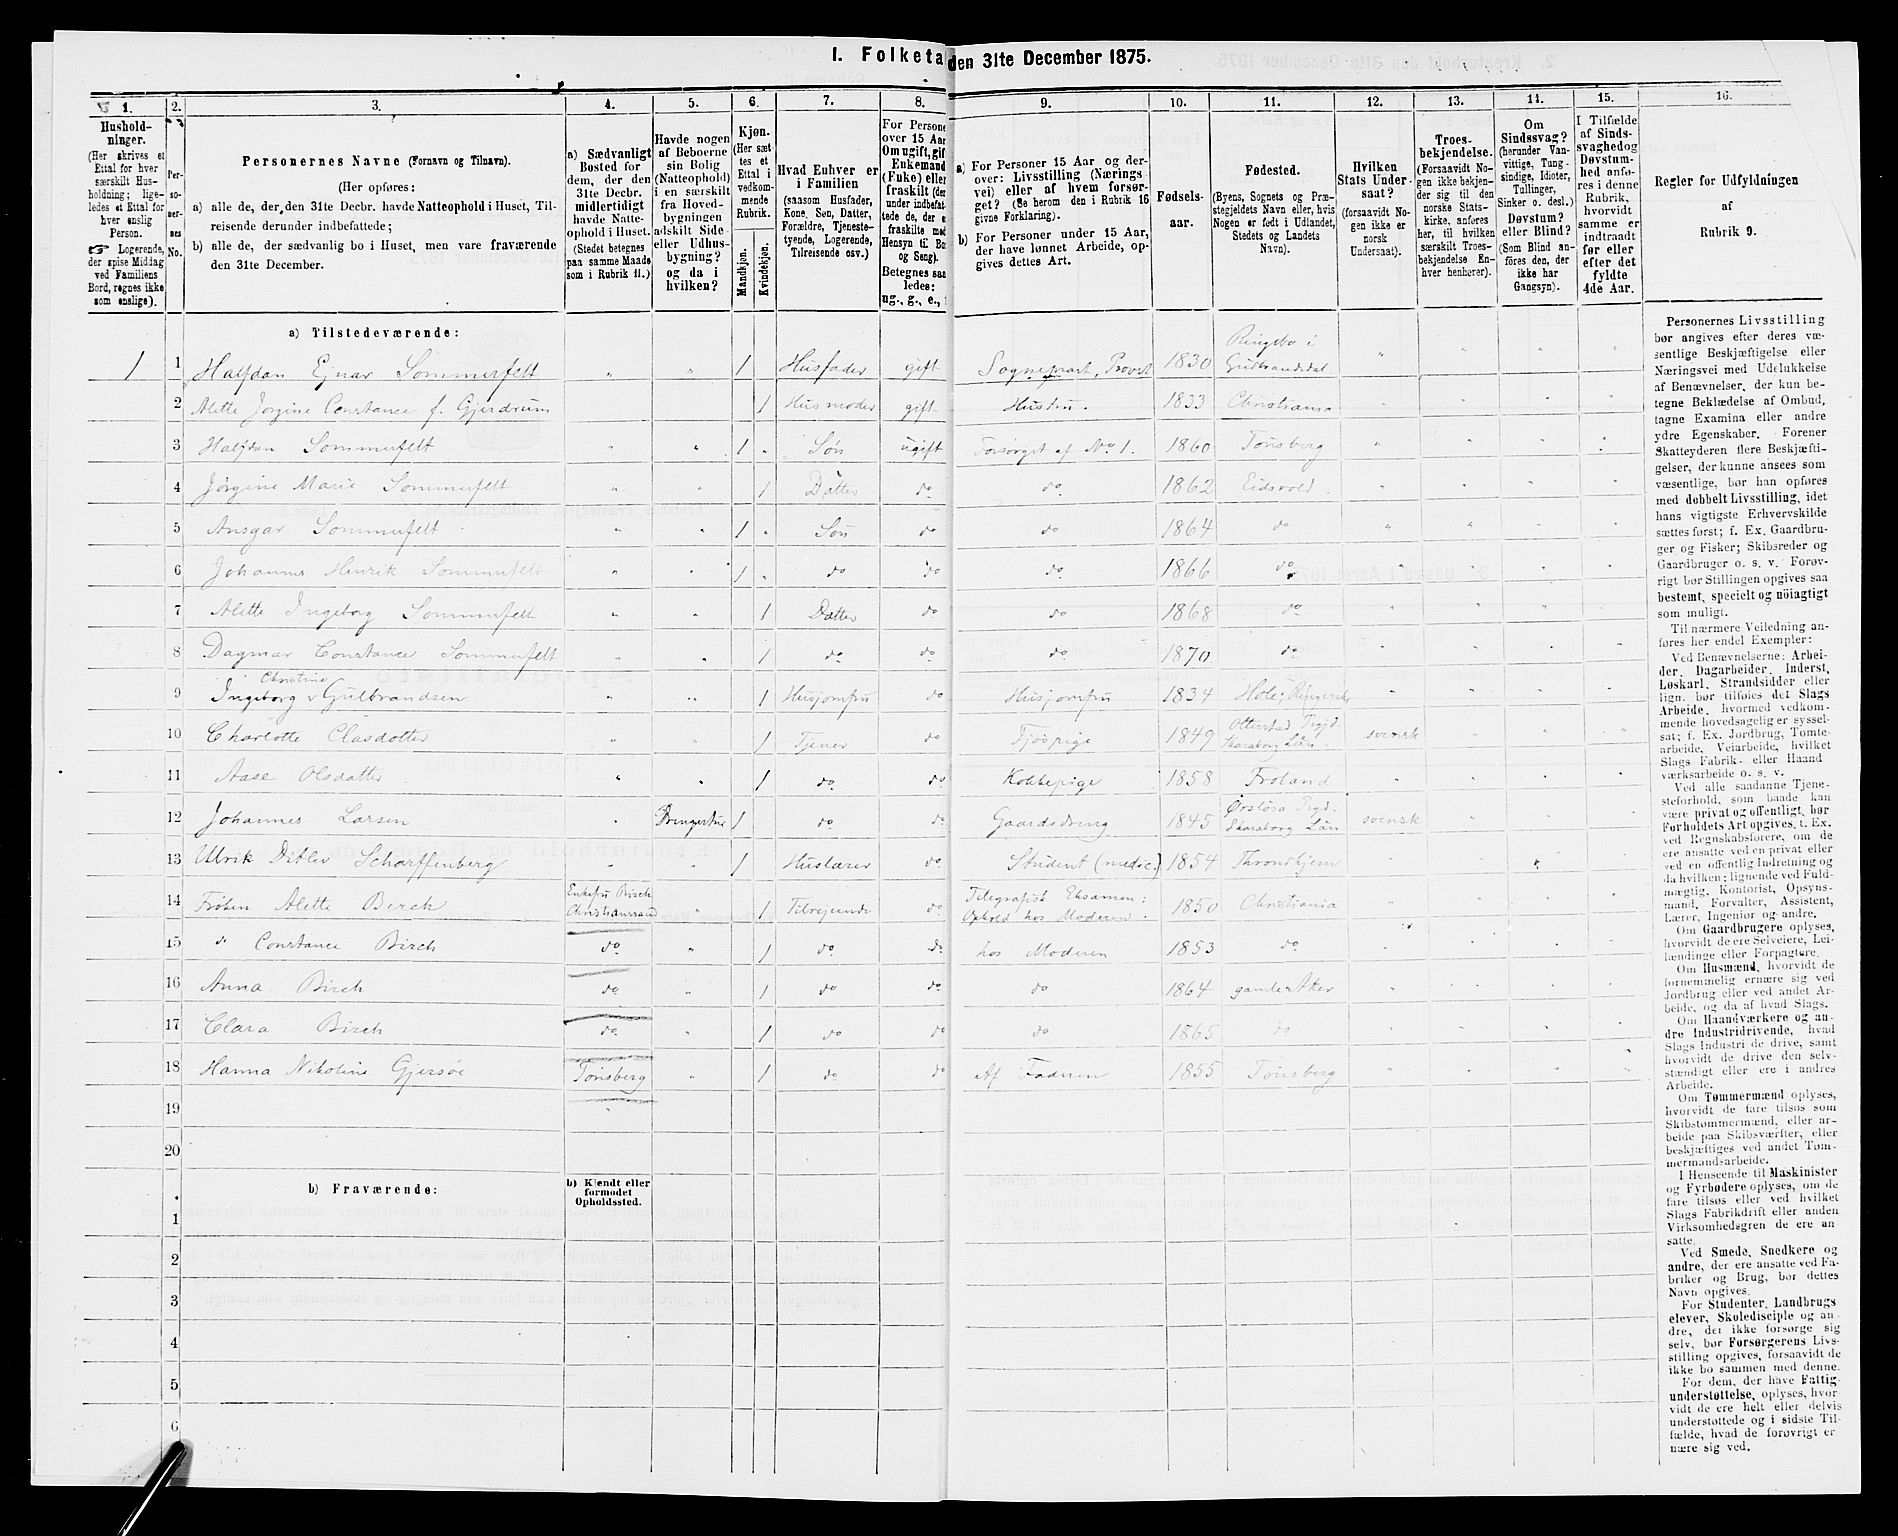 I. Folketæ
den 31te December 1875.
1.
2.
3.
4.
5.
6.
7.
8.
9.
10.
11.
12.
13.
14.
15.
16.
Hushold-
ninger.
(Her skrives et
Ettal for hver
særskilt Hus-
holdning; lige-
ledes et Ettal for
hver enslig
Person.
☞ Logerende,
der spise Middag
ved Familiens
Bord, regnes ikke
som enslige).
Per-
so-
ner-
nes
No.
Personernes Navne (Fornavn og Tilnavn).
(Her opføres:
a) alle de, der den 31te Decbr. havde Natteophold i Huset, Til-
reisende derunder indbefattede;
b) alle de, der sædvanlig bo i Huset, men vare fraværende
den 31te December.
a) Sædvanligt
Bosted for
dem, der den
31te Decbr.
midlertidigt
havde Natte-
ophold i Huset.
(Stedet betegnes
paa samme Maade
som i Rubrik 11.)
Havde nogen
af Beboerne
sin Bolig
(Natteophold)
i en særskilt
fra Hoved-
bygningen
adskilt Side-
eller Udhus-
bygning?
og da i
hvilken?
Kjøn.
(Her sæt-
tes et
Ettal i
vedkom-
mende
Rubrik.
Mandkjøn.
Kvindekjøn.
Hvad Enhver er
i Familien
(saasom Husfader,
Kone, Søn, Datter,
Forældre, Tjeneste-
tyende, Logerende,
Tilreisende osv.)
For Persone
over 15 Aar
Om ugift, gif
Enkemand
(Enke) eller
fraskilt (der
under indbefat-
tede de, der e
fraskilte med
Hensyn til Bo
og Seng).
Betegnes saa
ledes:
ug., g., e.,
a) For Personer 15 Aar og der-
over: Livsstilling (Nærings-
vei) eller af hvem forsør-
get? (Se herom den i Rubrik 16
givne Forklaring).
b) For Personer under 15 Aar,
der have lønnet Arbeide, op-
gives dettes Art.
Fødsels-
aar.
Fødested.
(Byens, Sognets og Præ-
stegjeldets Navn eller, hvis
Nogen er født i Udlandet,
Stedets og Landets
Navn).
Hvilken
Stats Under-
saat?
(forsaavidt No-
gen ikke er
norsk
Undersaat).
Troes-
bekjendelse.
(Forsaavidt No-
gen ikke bekjen-
der sig til den
norske Stats-
kirke, anføres
her, til hvilken
særskilt Troes-
bekjendelse En-
hver henhører).
Om
Sindssvag?
(herunder Van-
vittige, Tung-
sindige, Idioter,
Tullinger,
Sinker o. desl.)
Døvstum?
eller Blind?
(Som Blind an-
føres den, der
ikke har
Gangsyn).
I Tilfælde
af Sinds-
svaghed og
Døvstum-
hed anfø-
res i denne
Rubrik,
hvorvidt
samme er
indtraadt
før eller
efter det
fyldte
4de Aar.
Regler for Udfyldningen
af
Rubrik 9.
a) Tilstedeværende:
1 1 Halfdan Ejnar Sommerfelt " " 1 Husfader gift Sognepræst, Provst 1830 Ringebo i Gudbrandsdal " " " "
2 Alette Jørgine Constance f. Gjerdrum 1 Husmoder gift Hustru. 1833 Christiania
3 Halfdan Sommerfelt " " 1 Søn ugift Forsørget af No 1. 1860 Tønsberg
4 Jørgine Marie Sommerfelt " " 1 Datter do do 1862 Eidsvold.
5 Ansgar Sommerfelt " " 1 Søn do do 1864 do
6 Johannes Henrik Sommerfelt " " 1 do do do 1866 do
7 Alette Ingeborg Sommerfelt " " 1 Datter do do 1868 do
8 Dagmar Constance Sommerfelt " " 1 do do do 1870 do
9 Ingeborg Christine Gulbrandsen " " 1 Husjomfru do Husjomfru 1834 Hole, Ringerik
10 Charlotte Clasdotter " " 1 Tjener do 1849 Otterstad Prgjd. Skaraborg Län. svensk
11 Aase Olsdatter " " 1 do do Kokkepige 1858 Froland
12 Johannes Larsen " Drengestue 1 do do Gaardsdreng 1845 Prgjd. Skaraborg Län svensk
13 Ulrik Ditlev Scharffenberg 1 Huslærer do Student (medic.) 1854 Throndhjem
14 Frøken Alette Birch Enkefru Birch Christianssand " 1 Tilreisende do Telegrafist Eksamen; Ophold hos Moderen. 1850 Christiania
15 do Constance Birch do " 1 do do hos Moderen 1853 do
16 Anna Birch do " 1 do do do 1864 gamle Aker
17 Clara Birch do " 1 do do do 1865 do
18 Hanna Nikoline Gjersøe Tønsberg " 1 do do Af Faderen 1855 Tønsberg
19
20
b) Fraværende:
b) Kjendt eller
formodet
Opholdssted.
1
2
3
4
5
6
Personernes Livsstilling
bør angives efter deres væ-
sentlige Beskjæftigelse eller
Næringsvei med Udelukkelse
af Benævnelser, der kun be-
tegne Beklædelse af Ombud,
tagne Examina eller andre
ydre Egenskaber. Forener
Skatteyderen flere Beskjæfti-
gelser, der kunne ansees som
væsentlige, bør han opføres
med dobbelt Livsstilling, idet
hans vigtigste Erhvervskilde
sættes først; f. Ex. Gaardbru-
ger og Fisker; Skibsreder og
Gaardbruger o. s. v. Forøv-
rigt bør Stillingen opgives saa
bestemt, specielt og nøiagtigt
som muligt.
Til nærmere Veiledning an-
føres her endel Exempler:
Ved Benævnelserne: Arbei-
der, Dagarbeider, Inderst,
Løskarl, Strandsidder eller
lign. bør tilføies det Slags
Arbeide, hvormed vedkom-
mende hovedsagelig er syssel-
sat; f. Ex. Jordbrug, Tomte-
arbeide, Veiarbeide, hvilket
Slags Fabrik- eller Haand
værksarbeide o. s. v.
Ved alle saadanne Tjene-
steforhold, som baade kan
være privat og offentligt, bør
Forholdets Art opgives, t. Ex.
ved Regnskabsførere, om de
ere ansatte ved en privat eller
ved en offentlig Indretning og
da hvilken; lignende ved Fuld-
mægtig, Kontorist, Opsyns-
mand, Forvalter, Assistent,
Lærer, Ingeniør og andre.
Om Gaardbrugere oplyses,
hvorvidt de ere Selveiere, Lei-
lændinge eller Forpagtere.
Om Husmænd, hvorvidt de
fornemmelig ernære sig ved
Jordbrug eller ved andet Ar-
beide, og da af hvad Slags.
Om Haandværkere og an-
dre Industridrivende, hvad
Slags Industri de drive, samt
hvorvidt de drive den selv-
stændigt eller ere i andres
Arbeide.
Om Tømmermænd oplyses,
hvorvidt de fare tilsøs som
Skibstømmermænd, eller ar-
beide paa Skibsværfter, eller
beskjæftiges ved andet Tøm-
mermandsarbeide.
I Henseende til Maskinister
og Fyrbødere oplyses, om de
fare tilsøs eller ved hvilket
Slags Fabrikdrift eller anden
Virksomhedsgren de ere an-
satte.
Ved Smede, Snedkere og
andre, der ere ansatte ved Fa-
briker og Brug, bør dettes
Navn opgives.
For Studenter, Landbrugs
elever, Skoledisciple og an-
dre, der ikke forsørge sig
selv, bør Forsørgerens Livs-
stilling opgives, forsaavidt de
ikke bo sammen med denne.
For dem, der have Fattig
understøttelse, oplyses, hvor-
vidt de ere helt eller delvis
understøttede og i sidste Til-
fælde, hvad de forøvrigt er
nære sig ved.